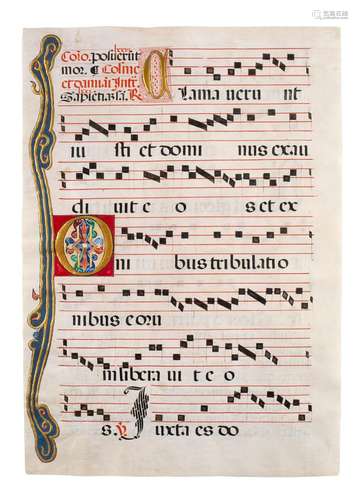 Coīo. posuerūt
mor. ¶ Cosme
et damiāi Intr.
Sapienaā. R.
Clamaverunt
iu sti et domi nus exau
di vit e o s et ex
O ni bus tribulatio
nibus eoru
m libera vit e o
s. ℣ Iuxta es do